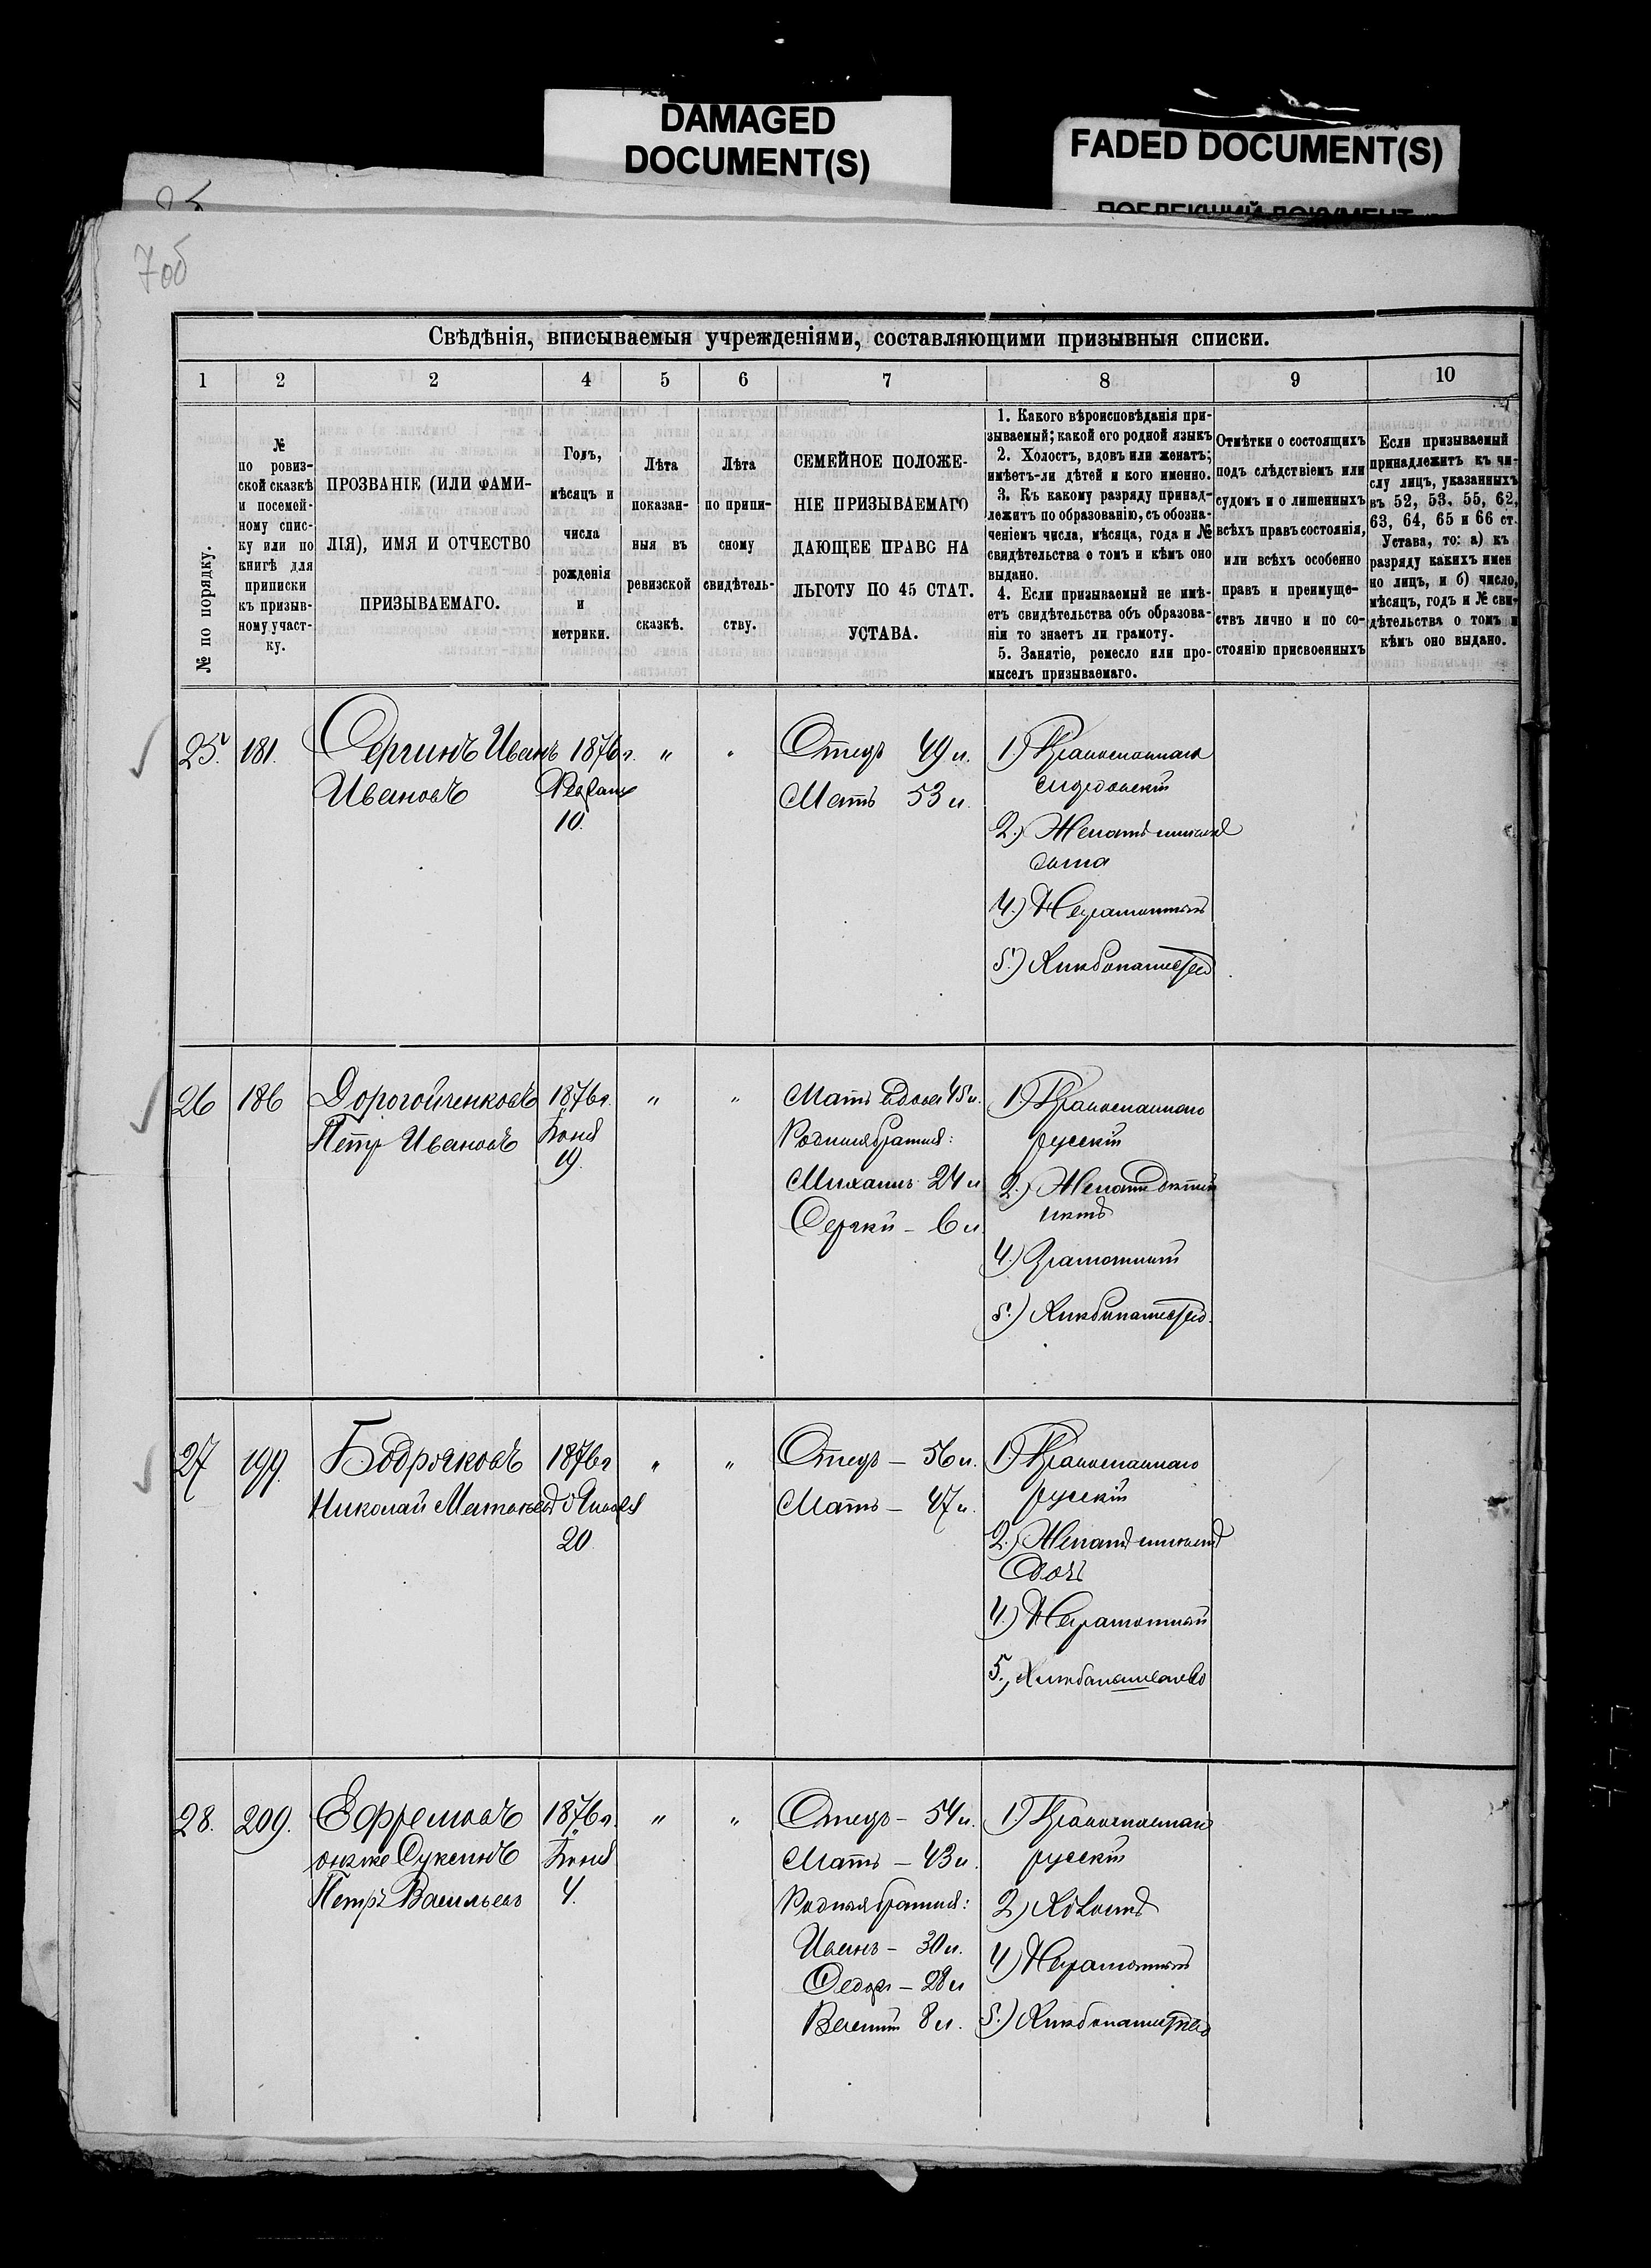 DAMAGED
DOCUMENT(S)
FADED DOCUMENT(S)
7об
Свѣдѣнія, вписываемыя учрежденіями, составляющими призывныя списки.
1
2
2
4
5
6
7
8
9
10
№ по порядку.
№
по ровиз-
ской сказкѣ
и посемей-
ному спис-
ку или по
книгѣ для
приписки
къ призыв-
ному участ-
ку.
ПРОЗВАНІЕ (ИЛИ ФАМИ-
ЛІЯ), ИМЯ И ОТЧЕСТВО
ПРИЗЫВАЕМАГО.
Годъ,
мѣсяцъ и
числа
рожденія
и
метрики.
Лѣта
показан-
ныя въ
ревизской
сказкѣ.
Лѣта
по припи-
сному
свидѣтель-
ству.
СЕМЕЙНОЕ ПОЛОЖЕ-
НІЕ ПРИЗЫВАЕМАГО
ДАЮЩЕЕ ПРАВО НА
ЛЬГОТУ ПО 45 СТАТ.
УСТАВА.
1. Какого вѣроисповѣданія при-
зываемый; какой его родной языкъ
2. Холостъ, вдовъ или женатъ;
имѣетъ-ли дѣтей и кого именно.
3. Къ какому разряду принад-
лежитъ по образованію, съ обозна-
ченіемъ числа, мѣсяца, года и №
свидѣтельства о томъ и кѣмъ оно
выдано.
4. Если призываемый не имѣ-
етъ свидѣтельства объ образова-
ніи то знаетъ ли грамоту.
5. Занятіе, ремесло или про-
мыселъ призываемаго.
Отмѣтки о состоящихъ
подъ слѣдствіемъ или
судомъ и о лишенныхъ
всѣхъ правъ состоянія,
или всѣхъ особенно
правъ и преимуще-
ствъ лично и по со-
стоянію присвоенныхъ
Если призываемый
принадлежитъ къ чи-
слу лицъ, указанныхъ
въ 52, 53, 55, 62,
63, 64, 65 и 66 ст.
Устава, то: а) къ
разряду какихъ имен
но лицъ, и б) число,
мѣсяцъ, годъ и № сви-
дѣтельства о томъ и
кѣмъ оно выдано.
25. 181. Сергинъ Иванъ 1876г. " " Отецъ 49 л. 1.) Православнаго
Ивановъ
10.
Мать 53 л.
2.) Женатъ имѣетъ
сына
4.) Неграмотный
5.) Хлѣбопашество
26 186 Дорогойченковъ 1876г. " " Мать вдова 45 л. 1.) Православнаго
Петръ Ивановъ Іюня Родныя братья: русскій
19. Михаилъ 24 л. 2.) Женатъ дѣтей
Сергѣй – 6 л. нѣтъ
4.) Грамотный
5.) Хлѣбопашество.
27 199. Бодряковъ 1876г " " Отецъ – 56 л. 1) Православнаго
Николай Матвѣевъ Мать – 47 л. русскій
20. 2.) Женатъ имѣетъ
дочь
4.) Неграмотный
5., Хлѣбопашество
28. 209. Ефремовъ 1876г. " " Отецъ – 54 л. 1) Православнаго
онже Суксинъ Іюня Мать – 43 л. русскій
Петръ Васильевъ 4. Родныя братья: 2) Холостъ
Иванъ – 30 л. 4) Неграмотный
Федоръ – 28 л
Василій 8 л. 5.) Хлѣбопашество